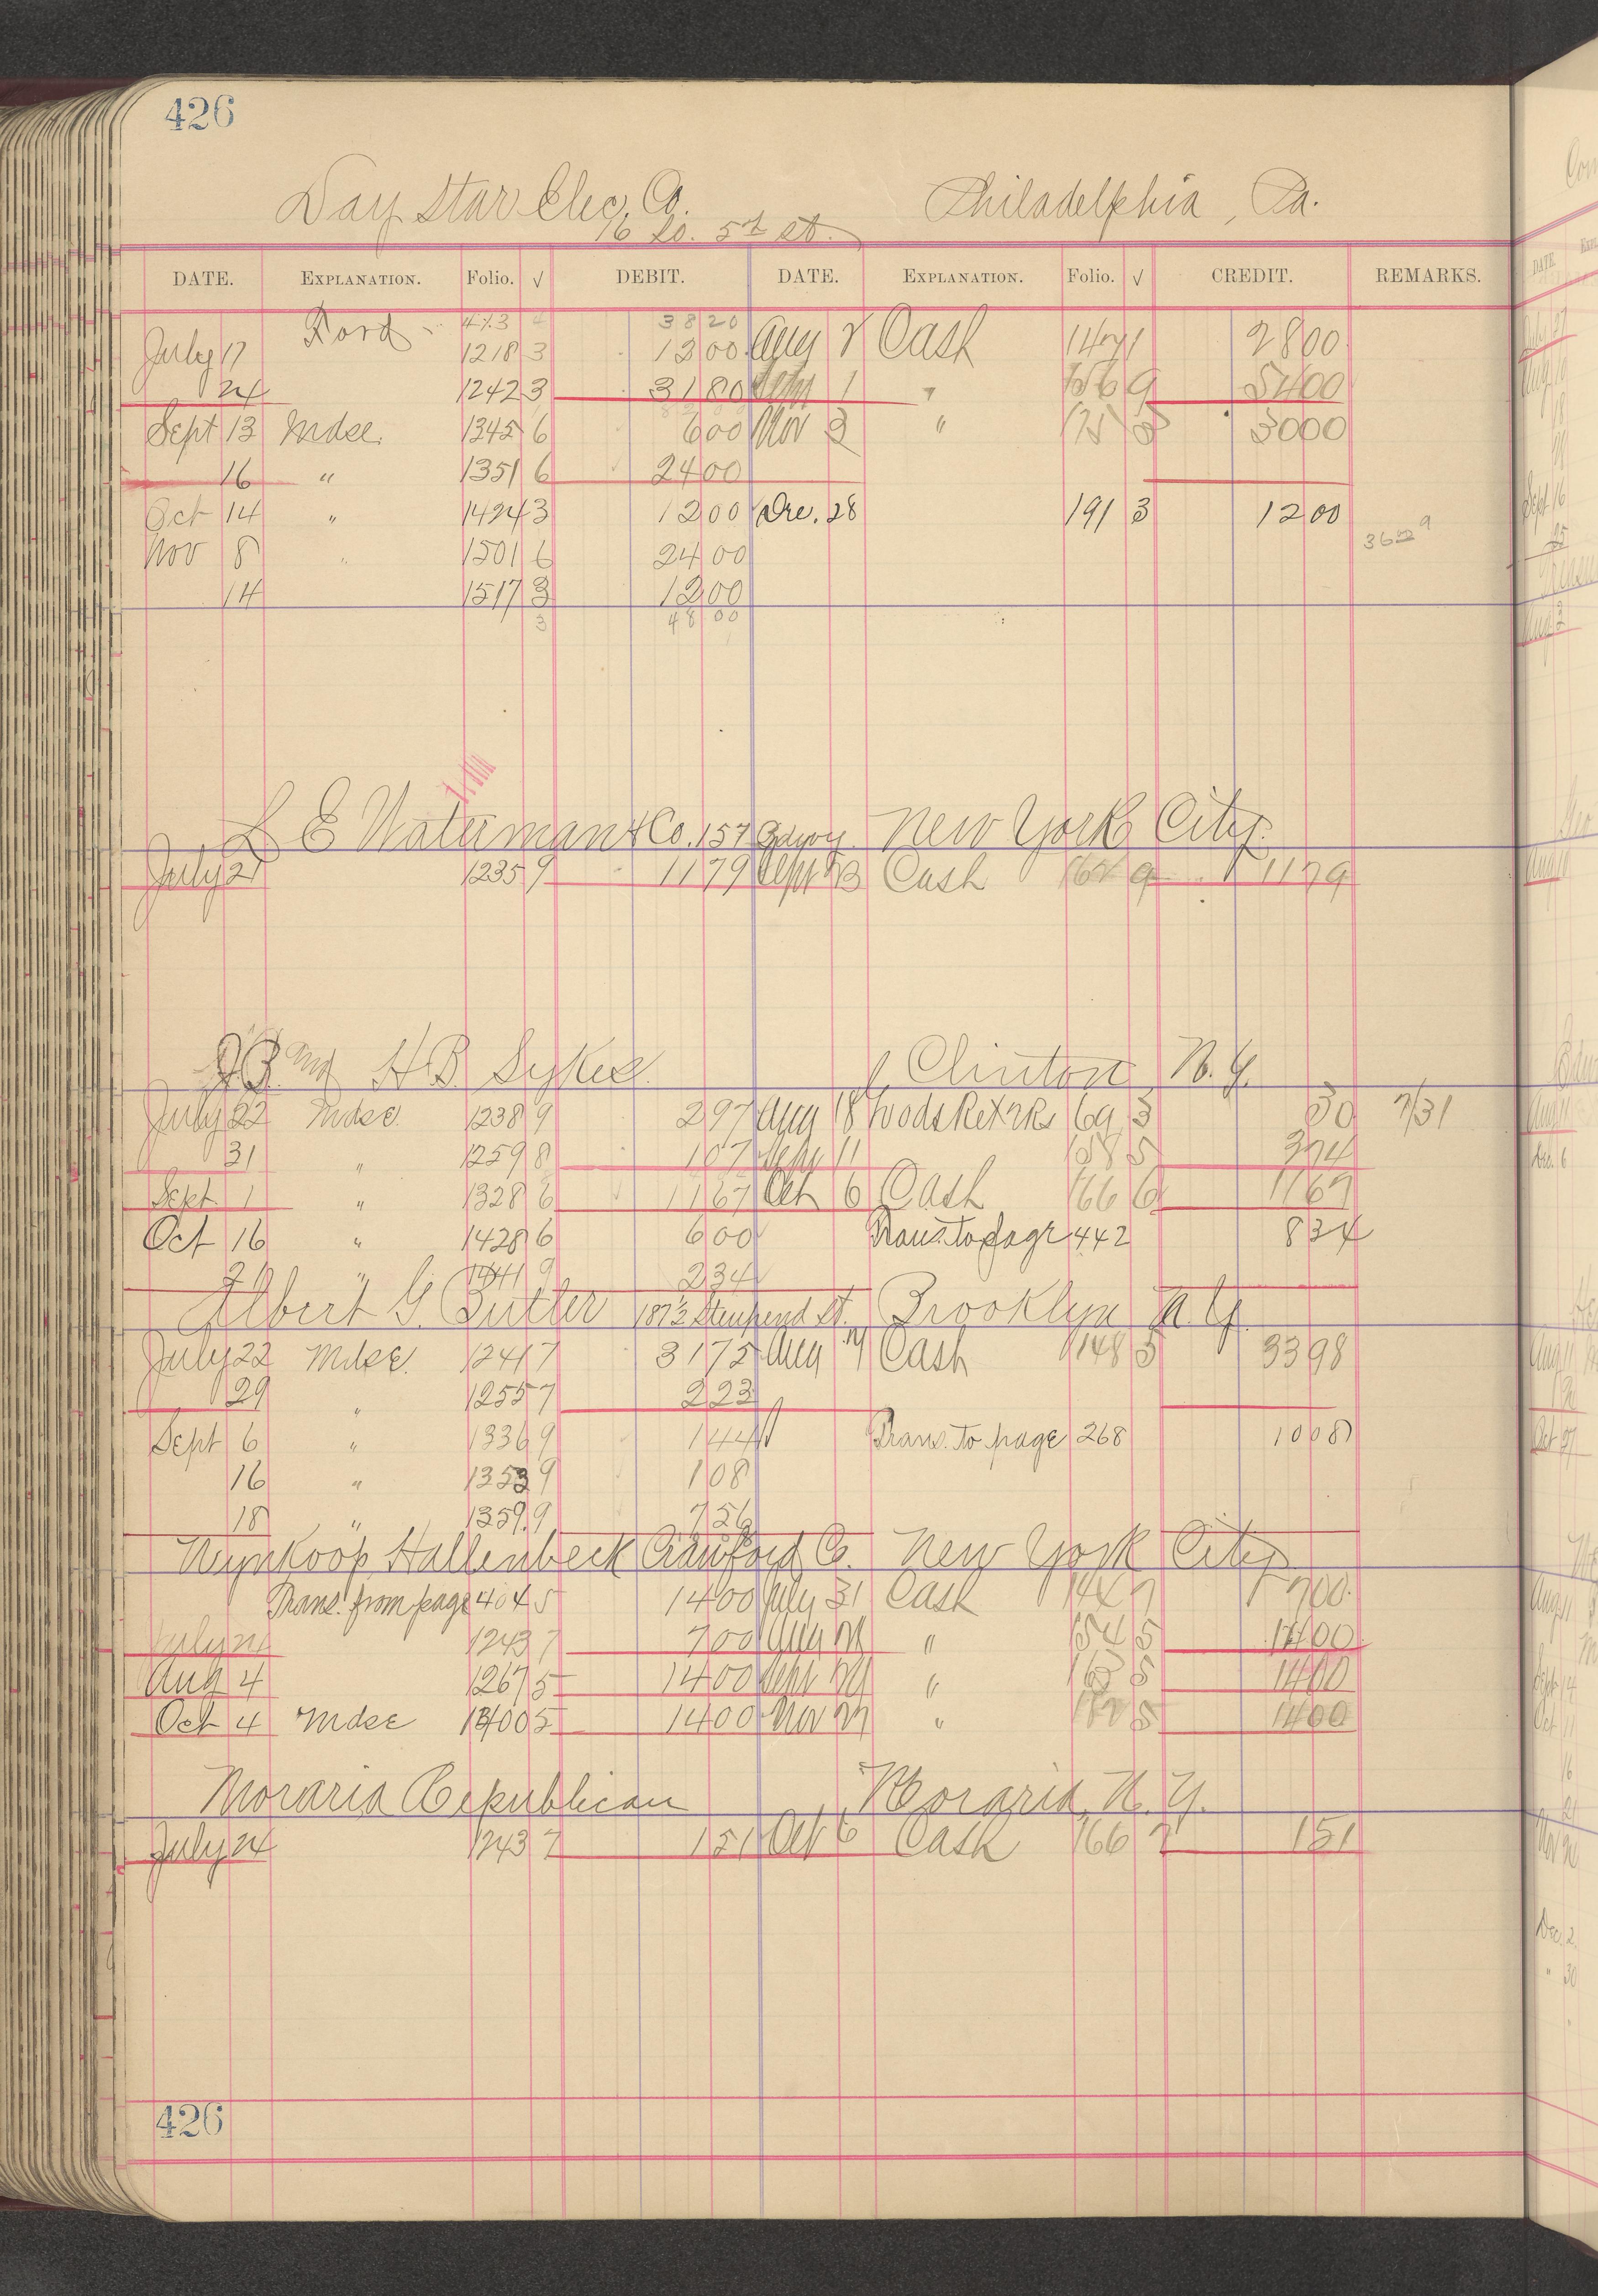 426
Day Star Elec. Co. Philadelphia, Pa.
16 So. 5th st.
DATE. EXPLANATION. Folio. √ DEBIT. DATE. EXPLANATION. Folio. √ CREDIT. REMARKS.
Ford 413 38 20
July 17 1218 3 12 00 Aug 8 Cash 147 1 28 00
24 1242 3 31 80 Sept 1 " 156 9 54 00
Sept 13 Mdse. 1345 6 6 00 Nov 3 " 175 30 00
16 " 1351 6 24 00
Oct 14 " 1424 3 12 00 Dec. 28 191 3 12 00
36 00
Nov 8 " 1501 6 24 00
14 1517 3 12 00
3 48 00
L E Waterman & Co. 157 Bdwy. New York City.
July 21 1235 9 11 79 Sept 23 Cash 162 9 11 79
H B Sykes. Clinton, N.Y.
July 22 Mdse. 1238 9 2 97 Aug 18 Goods Ret 69 3 30 7/31
31 " 1259 8 1 07 Sept 11 158 5 3 74
Sept. 1 " 1328 6 11 67 Oct 6 Cash 166 6 11 67
Oct 16 " 1428 6 6 00 Trans. to page 442 8 34
" 1441 9 2 34
Albert G. Butler St. Brooklyn N.Y.
July 22 Mdse. 1241 7 31 75 Aug 14 Cash 148 5 33 98
29 " 1255 7 2 23
Sept 6 " 1336 9 1 44 Trans. to page 268 10 08
16 " 1353 9 1 08
18 " 1359 9 7 56
Wynkoop Hallenbeck Crawford Co. New York City
Trans. from page 404 5 14 00 July 31 Cash 144 7 7 00
July 24 1243 7 7 00 Aug " 154 5 14 00
Aug 4 1267 5 14 00 Sept " 163 5 14 00
Oct 4 Mdse 1400 5 14 00 Nov " 5 14 00
Moravia Republican Moravia, N.Y.
July 24 1243 7 1 51 Oct 6 Cash 166 7 1 51
426